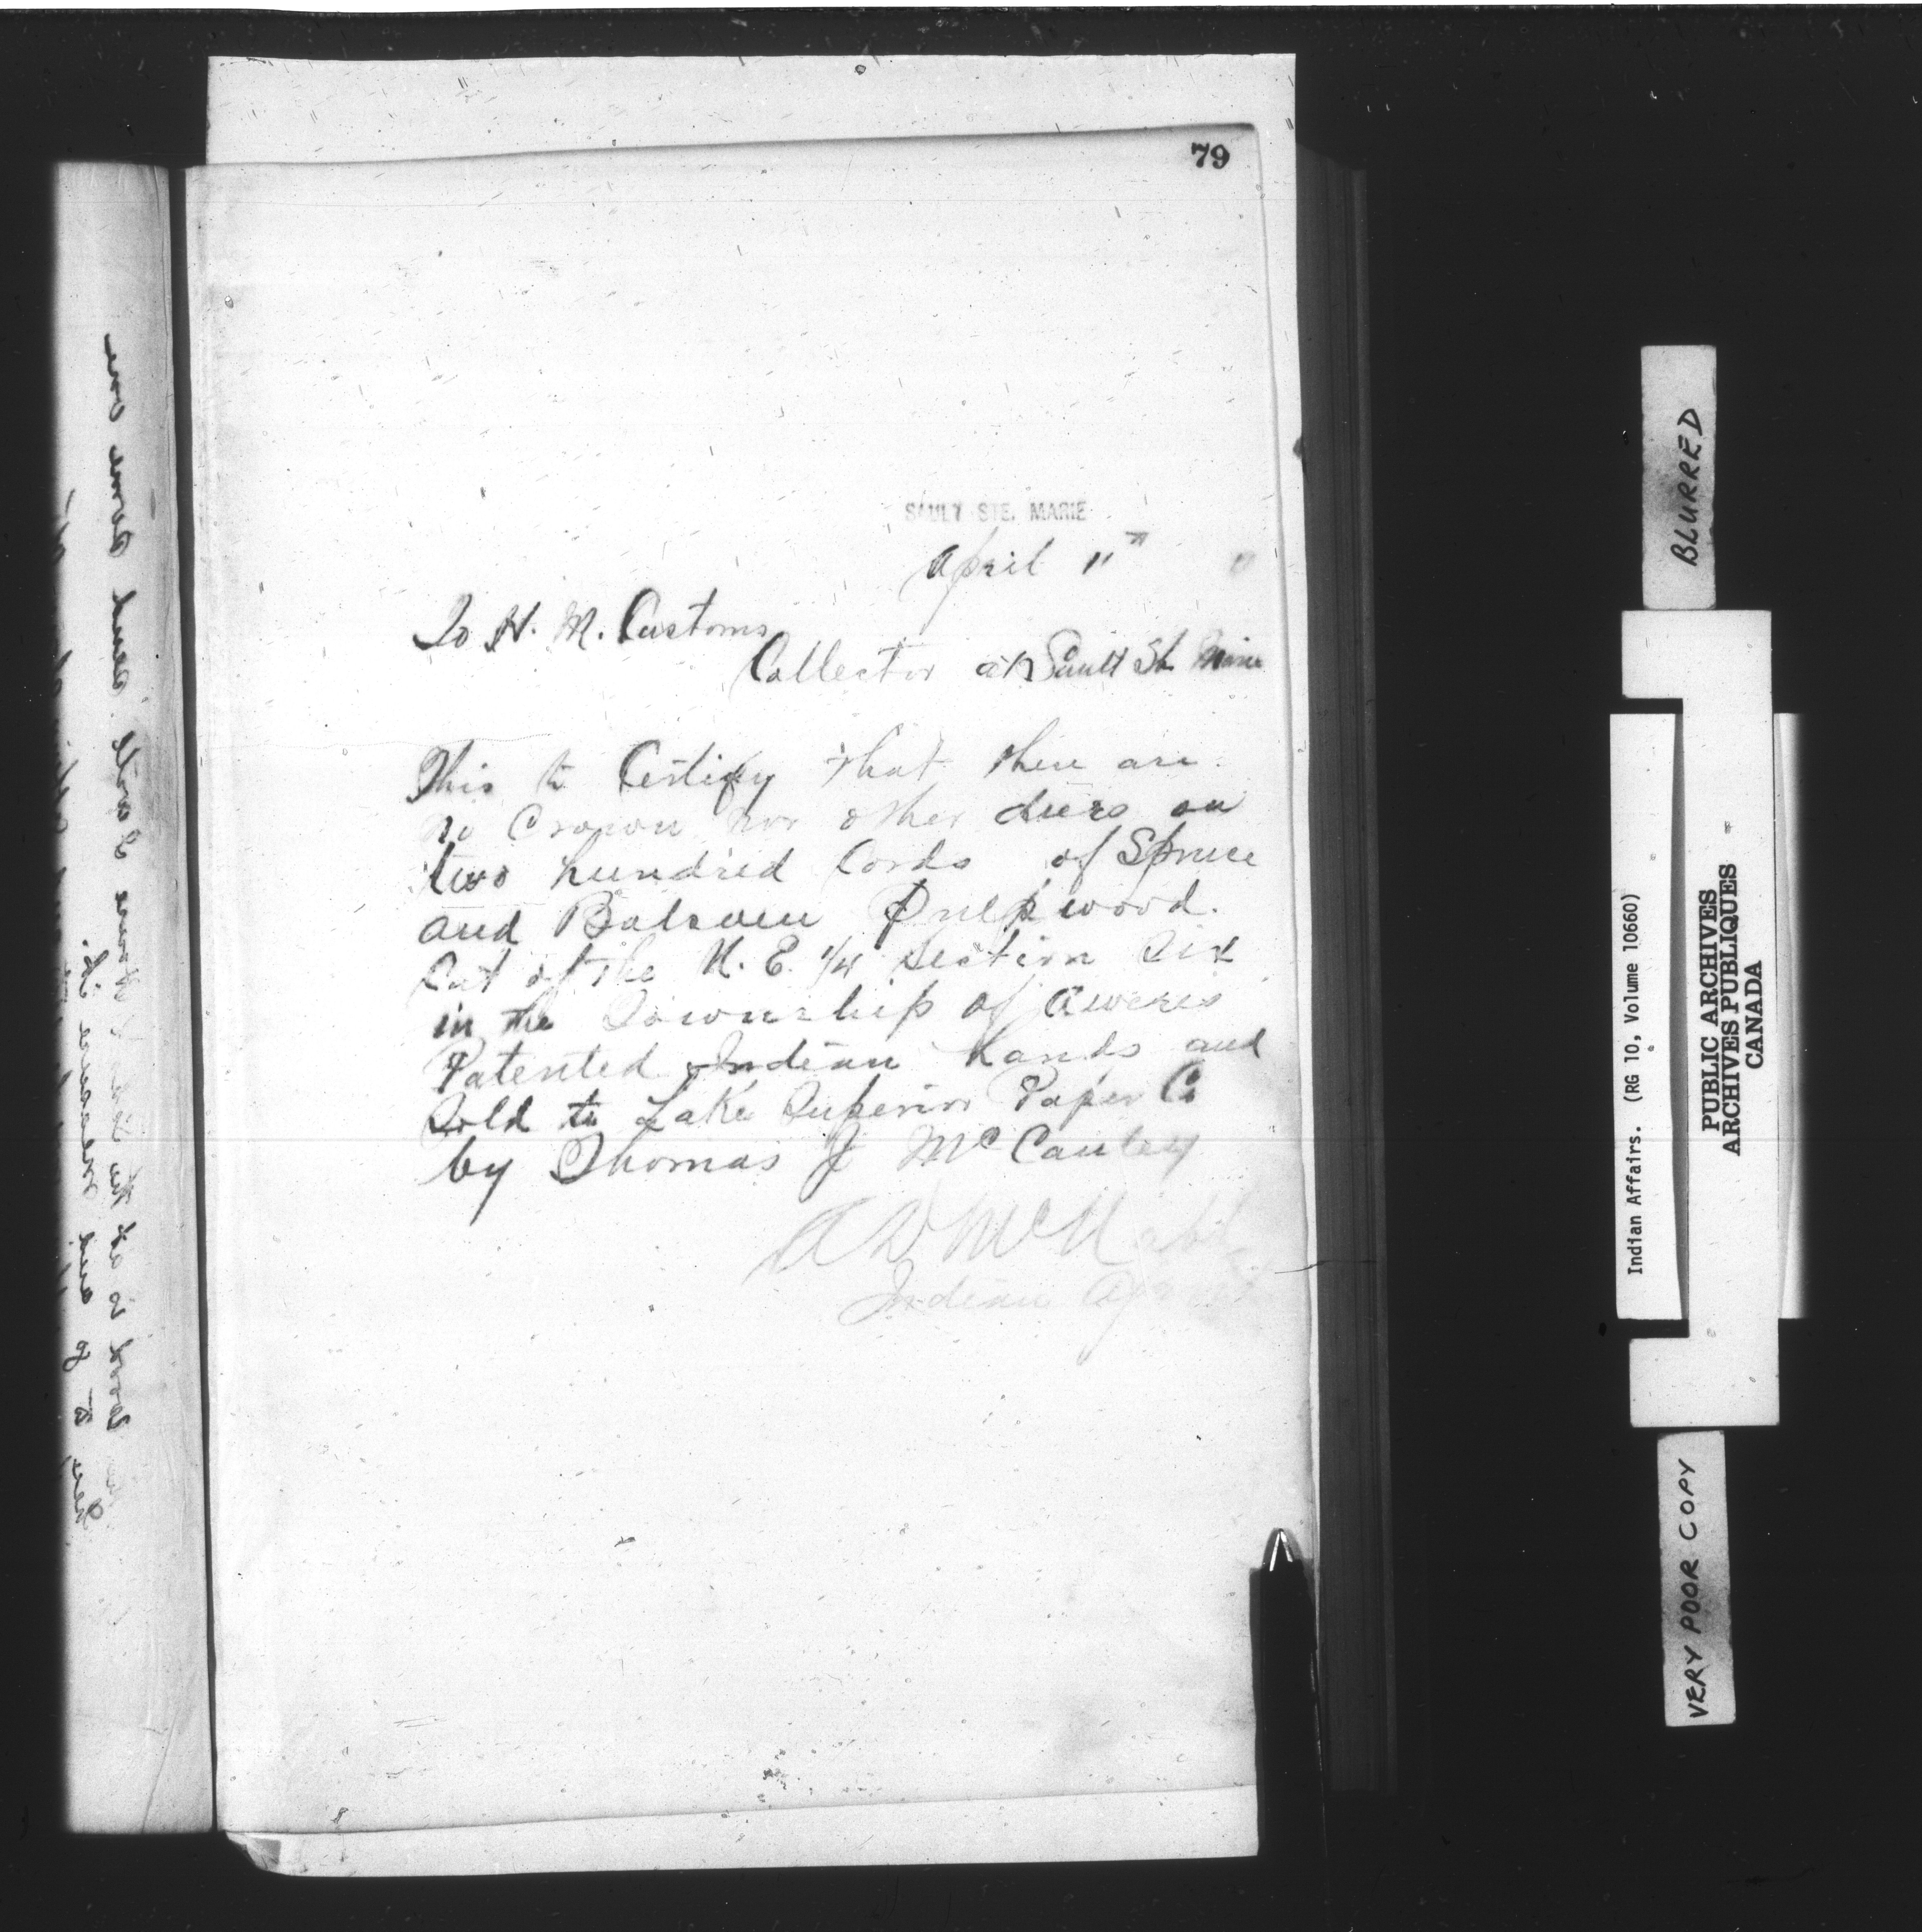 79
SAULT STE. MARIE
April 11"
To H. M. Customs
Collector at Sault Ste Marie
This to Certify that there are
no Crown nor other dues on
two hundred Cords of Spruce
and Balsam Pulpwood.
Cut of the N. E. 1/4 Section Six
in the Township of Aweres
Patented Indian Lands and
Sold to Lake Superior Paper Co
by Thomas J McCauley
A D McNabb
Indian Agent
BLURRED
Indian Affairs. (RG 10, Volume 10660)
PUBLIC ARCHIVES
ARCHIVES PUBLIQUES
CANADA
VERY POOR COPY